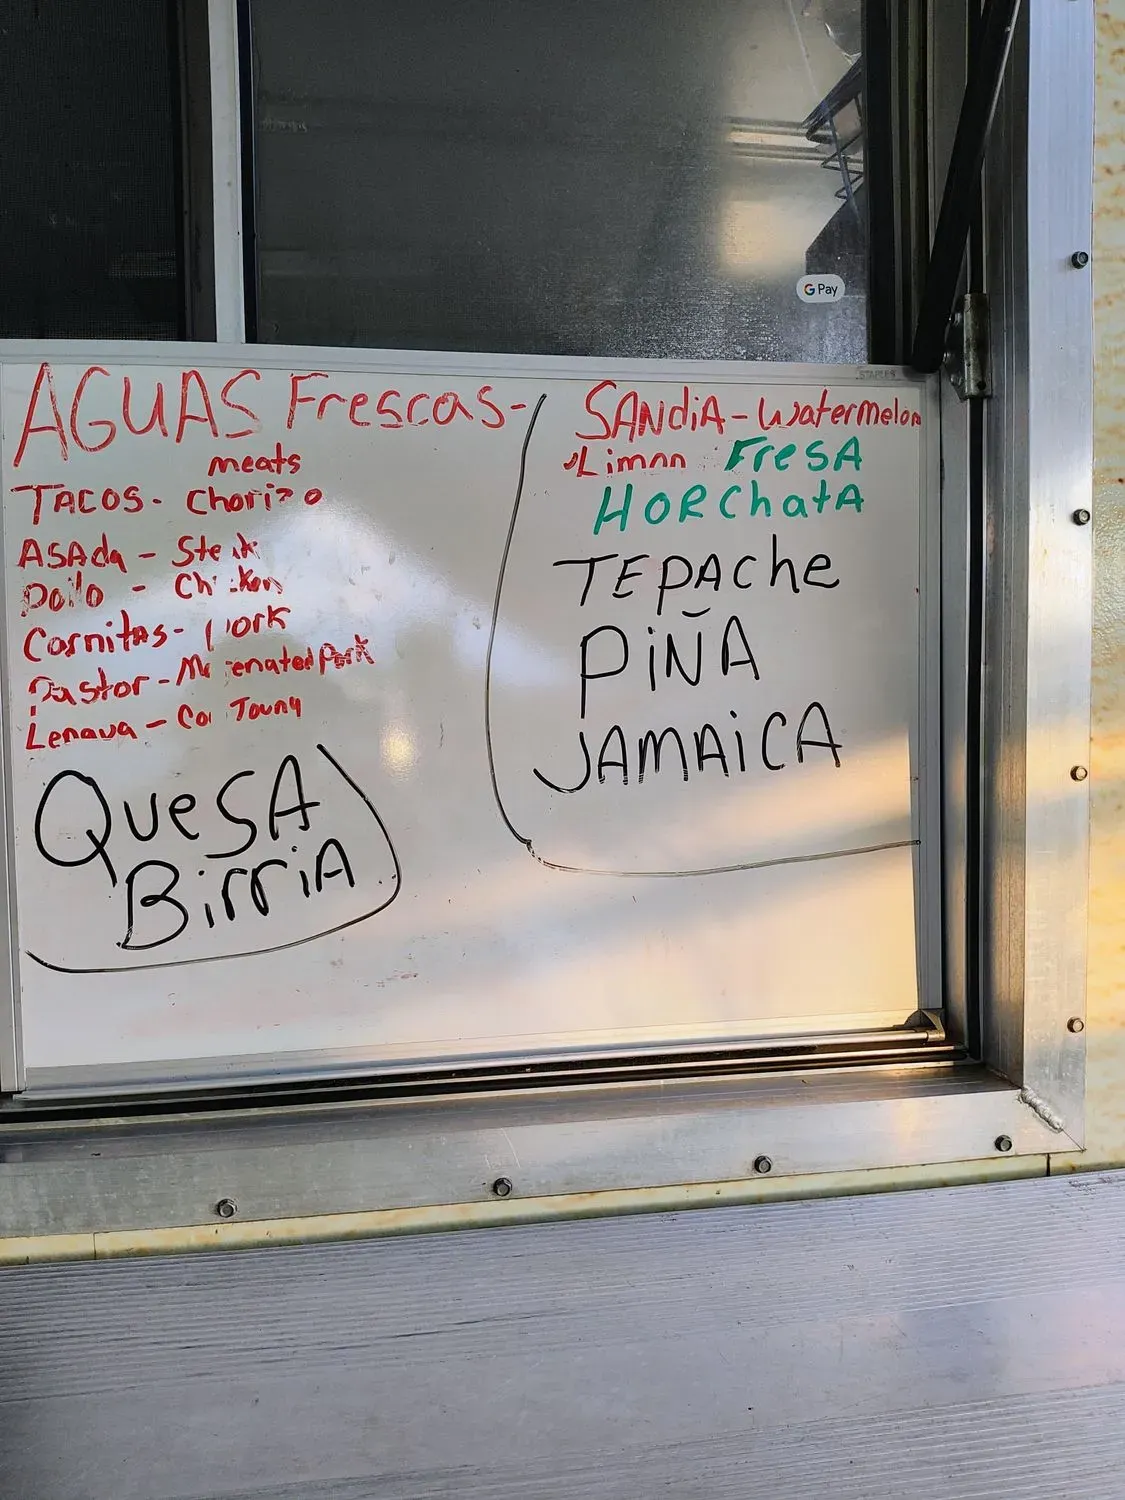 G Pay
STAPLES
AGUAS Frescas-
meats
TACOS - Chorizo
ASAda - Steak
Pollo - Chicken
Carnitas - pork
Pastor - Marenated Pork
Lengua - Cow Toung
QuesA
BirriA
SANdiA - Watermelon
Limon FresA
HORChatA
TEPAChe
PiÑA
JAMAiCA